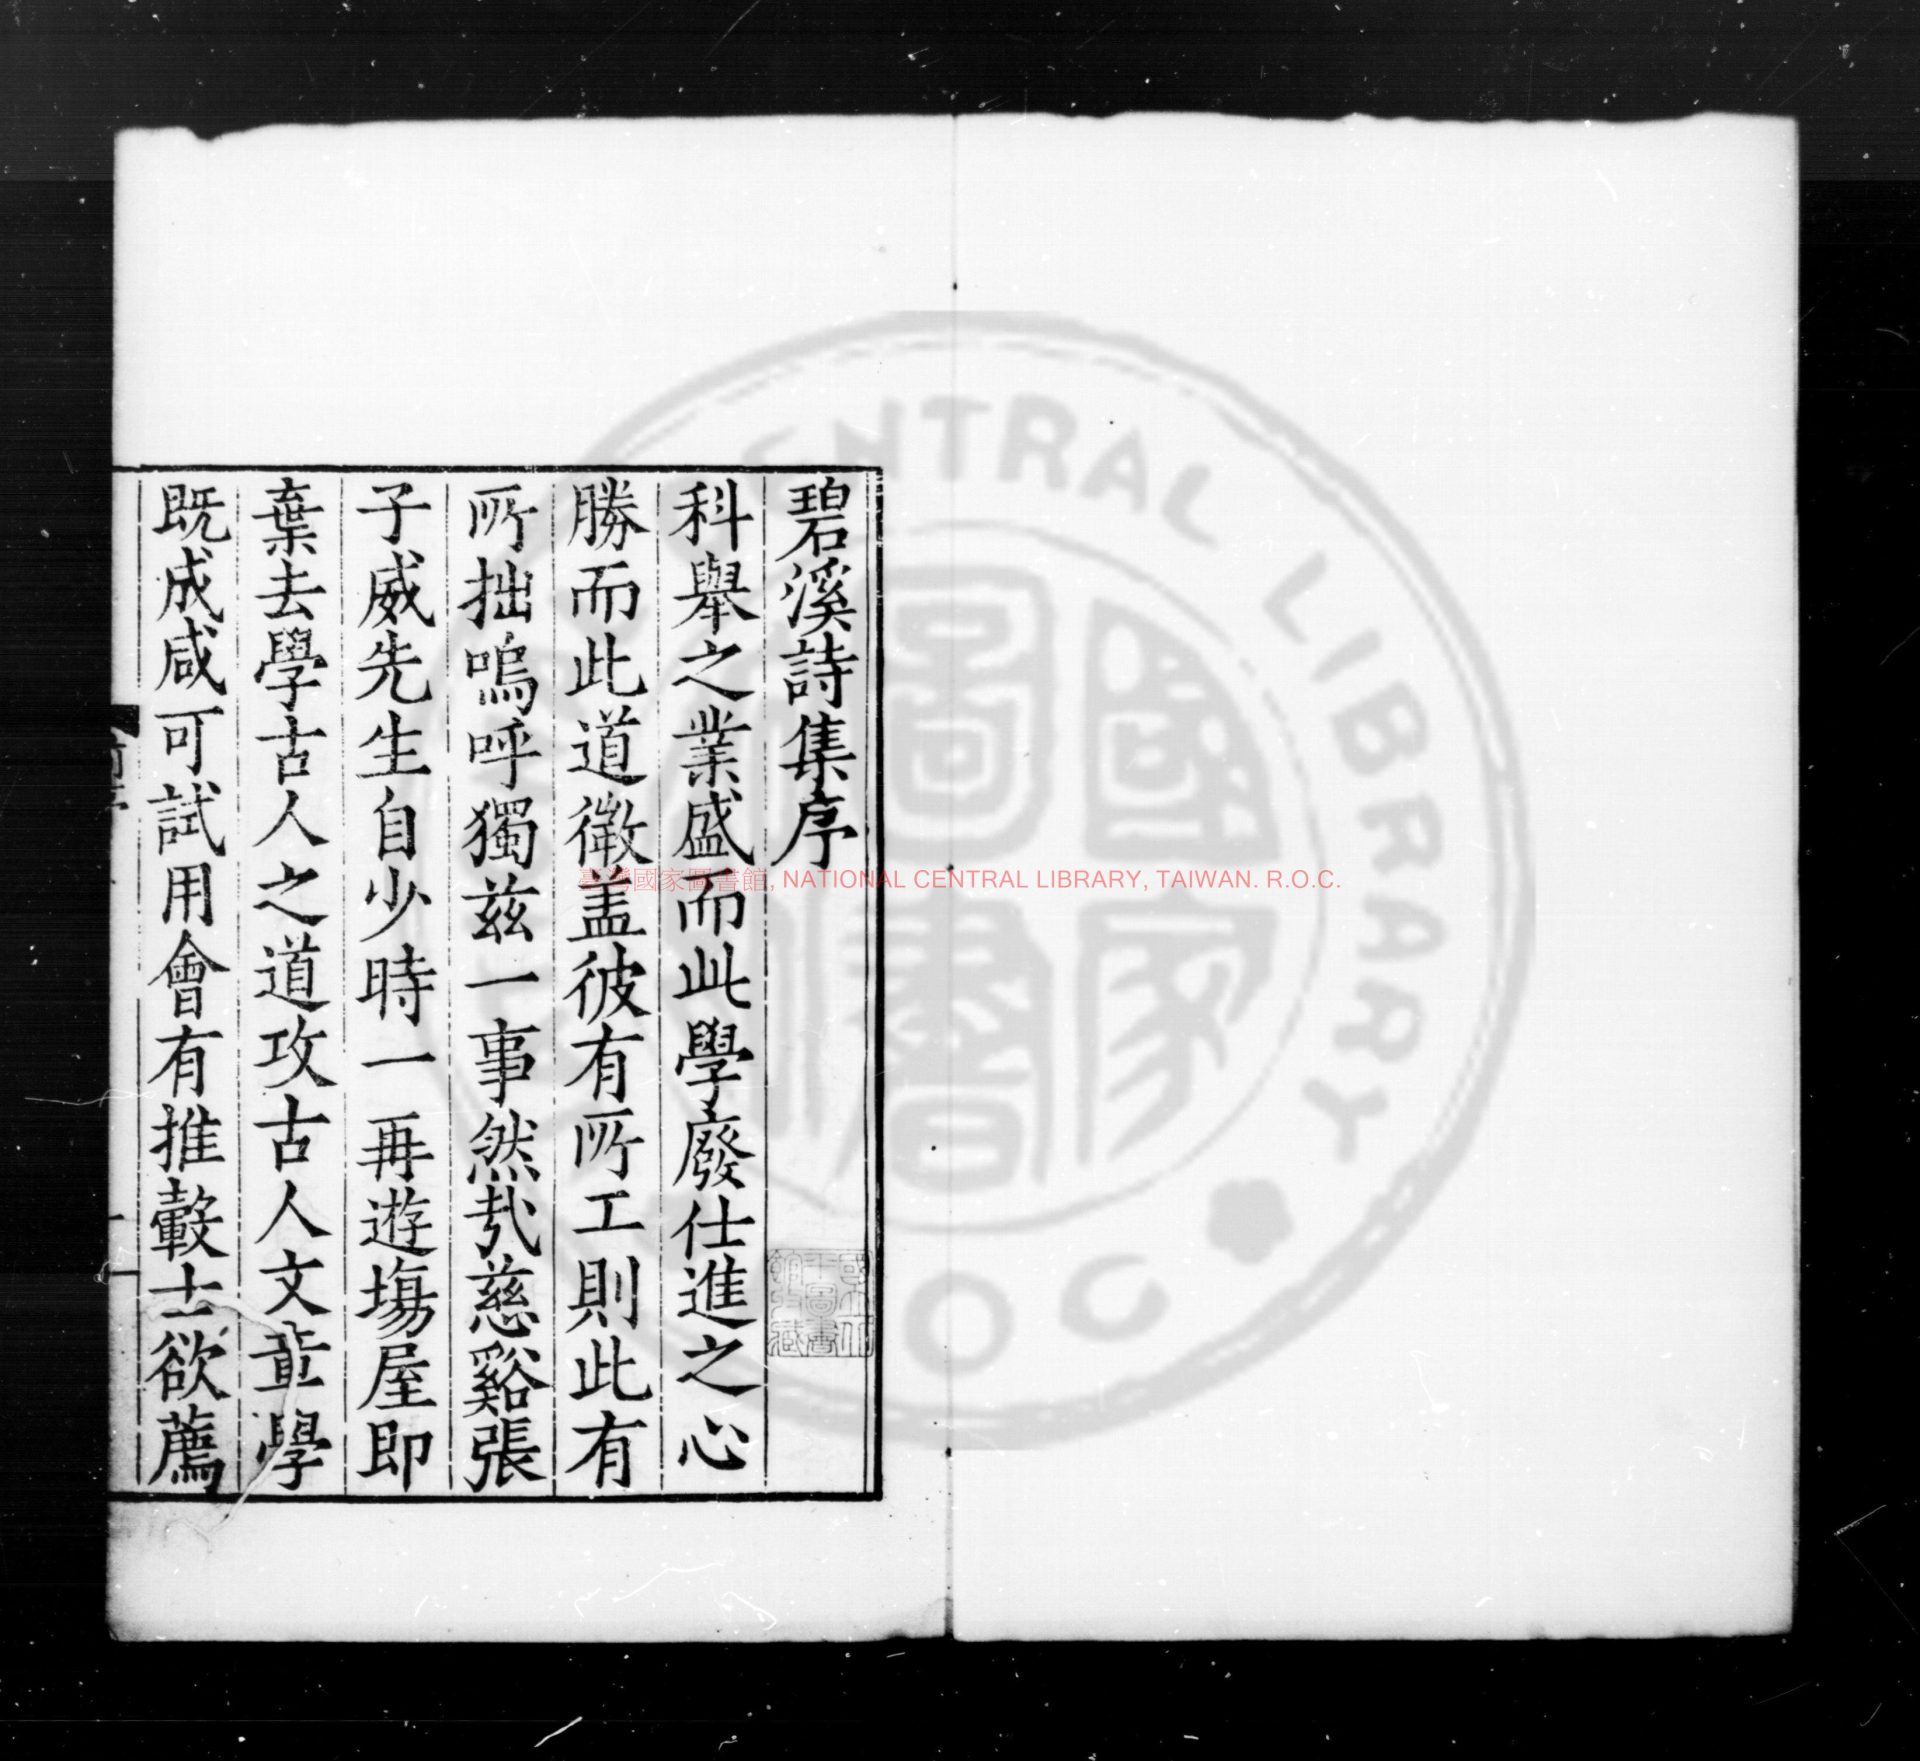 碧溪詩集序
科舉之業盛而此學廢仕進之心
勝而此道微盖彼有所工則此有
所拙嗚呼獨兹一事然㢤慈谿張
子威先生自少時一再遊塲屋即
棄去學古人之道攻古人文章學
既成咸可試用會有推轂士欲薦
臺灣國家圖書館, NATIONAL CENTRAL LIBRARY, TAIWAN. R.O.C.
CENTRAL LIBRARY
國家圖書